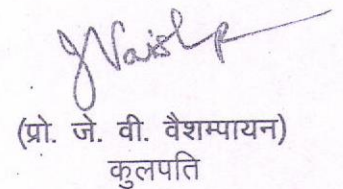 (प्रो. जे. वी. वैशम्पायन)
कुलपति